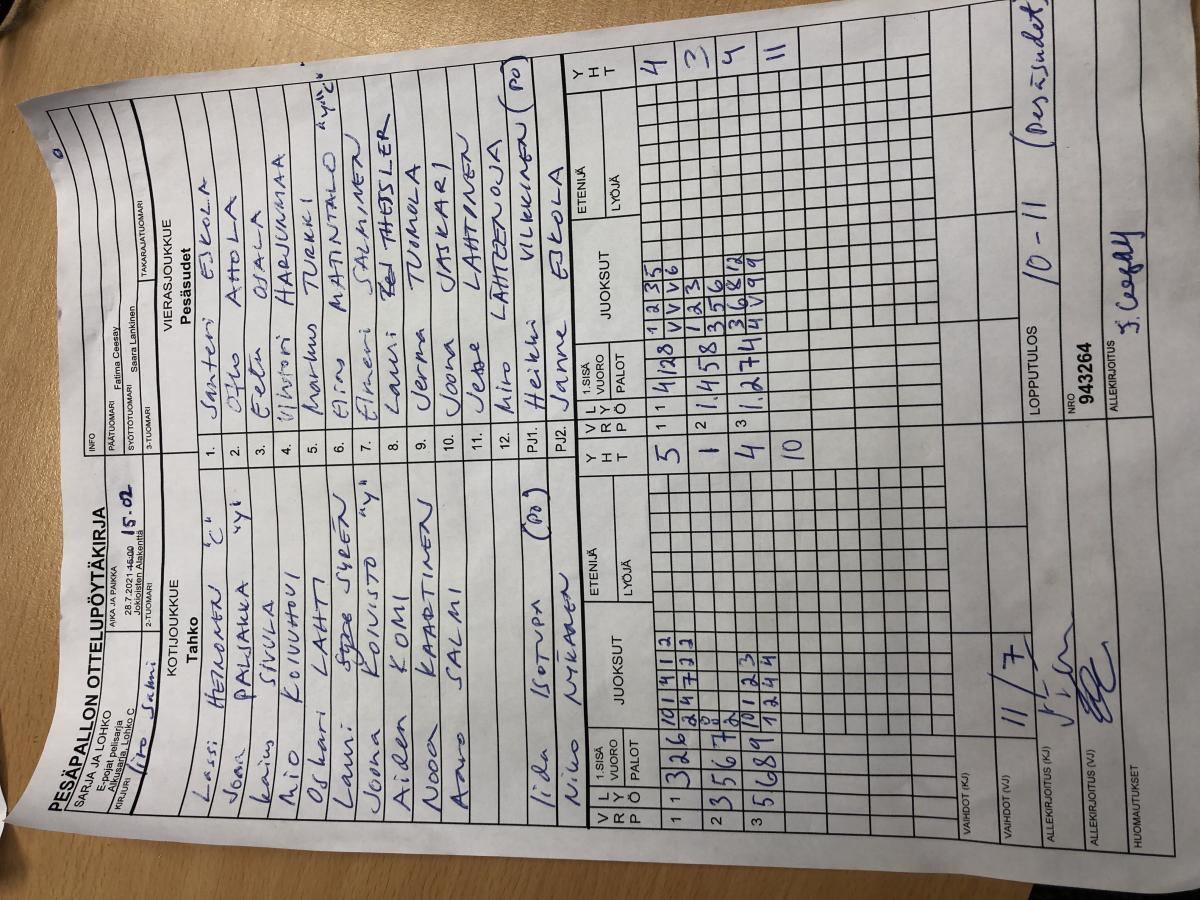 PESÄPALLON OTTELUPÖYTÄKIRJA
SARJA JA LOHKO
E-pojat pelisarja
Alkusarja, Lohko C
AIKA JA PAIKKA
28.7.2021 15.02
Jokioisten Alakenttä
INFO
PÄÄTUOMARI
Fatima Ceesay
SYÖTTÖTUOMARI
Saara Lankinen
KIRJURI
Iiro Salmi
2-TUOMARI
3-TUOMARI
TAKARAJATUOMARI
KOTIJOUKKUE
Tahko
VIERASJOUKKUE
Pesäsudet
Lassi HEINONEN "C"
1. Santteri ESKOLA
PALSAKKA "y"
2. Otto AHOLA
Kaius SIVULA
3. Eetu OSALA
Mio KOIVUHOVI
4. HARJUNMAA
Oskari LAHTI
5. Markus TURKKI
Lauri SYRÉN
6. MATINTALO
Joona KOIVISTO "y"
7. Elmeri SALMINEN
Aiden KOMI
8. Lauri THESLER
Nooa KAARTINEN
9. Jerma TUOMOLA
Aaro SALMI
10. Joona JASKARI
11. Jesse LAHTINEN
12. Miro LÄHTEENOJA
Iida ISOTUPA (PO)
PJ1. Heikki VILKKINEN (PO)
Niko NYKÄNEN
PJ2. Janne ESKOLA
V R P L Y Ö 1.SISÄ VUORO PALOT JUOKSUT ETENIJÄ LYÖJÄ Y H T
V R P L Y Ö 1.SISÄ VUORO PALOT JUOKSUT ETENIJÄ LYÖJÄ Y H T
1 1 3 2 6 10 1 4 1 2 5
2 4 7 2 2
1 1 4 1 2 8 1 2 3 5 4
V V V 6
2 3 5 6 7 1
2 1. 4 5 8 1 2 3 3
3 5 6
3 5 6 8 9 10 1 2 3 4
1 2 4 4
3 1. 2 7 4 3 6 8 12 4
4 V 9 9
10
11
VAIHDOT (KJ)
VAIHDOT (VJ)
11/7
LOPPUTULOS
10-11 (Pesäsudet)
ALLEKIRJOITUS (KJ)
ALLEKIRJOITUS (VJ)
NRO
943264
HUOMAUTUKSET
ALLEKIRJOITUS